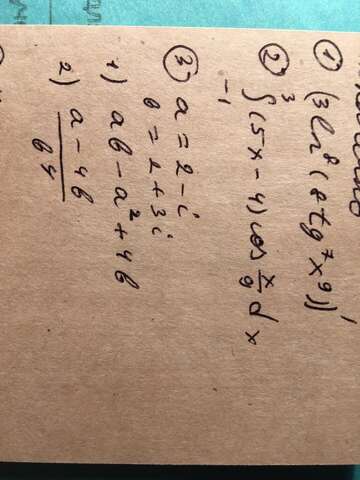 ① (3ln⁸(8tg⁷x⁹))'
② ∫₋₁³(5x-4)cos x/9 dx
③ a = 2-i
b = 2+3i
1) ab-a²+4b
2) (a-4b)/b⁴